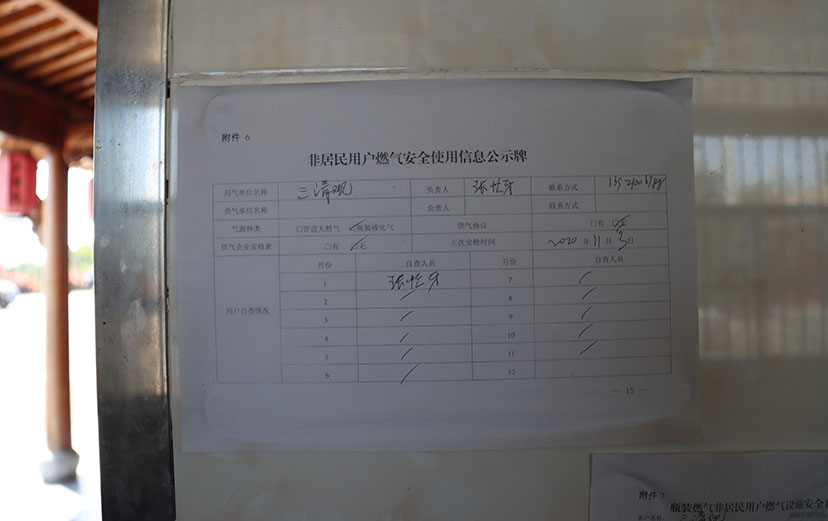 附件 6
非居民用户燃气安全使用信息公示牌
用气单位名称 三清观 负责人 联系方式
供气单位名称 负责人 联系方式
气源种类 □管道天然气 ☑瓶装液化气 供气协议 □有 ☑无
供气企业安检表 □有 ☑无 上次安检时间 2020 年 11 月 3 日
用户自查情况 月份 自查人员 月份 自查人员
1 7 /
2 / 8 /
3 / 9 /
4 / 10 /
5 / 11 /
6 / 12
— 15 —
附件 7
瓶装燃气非居民用户燃气设施安全
客户名称: 三清观